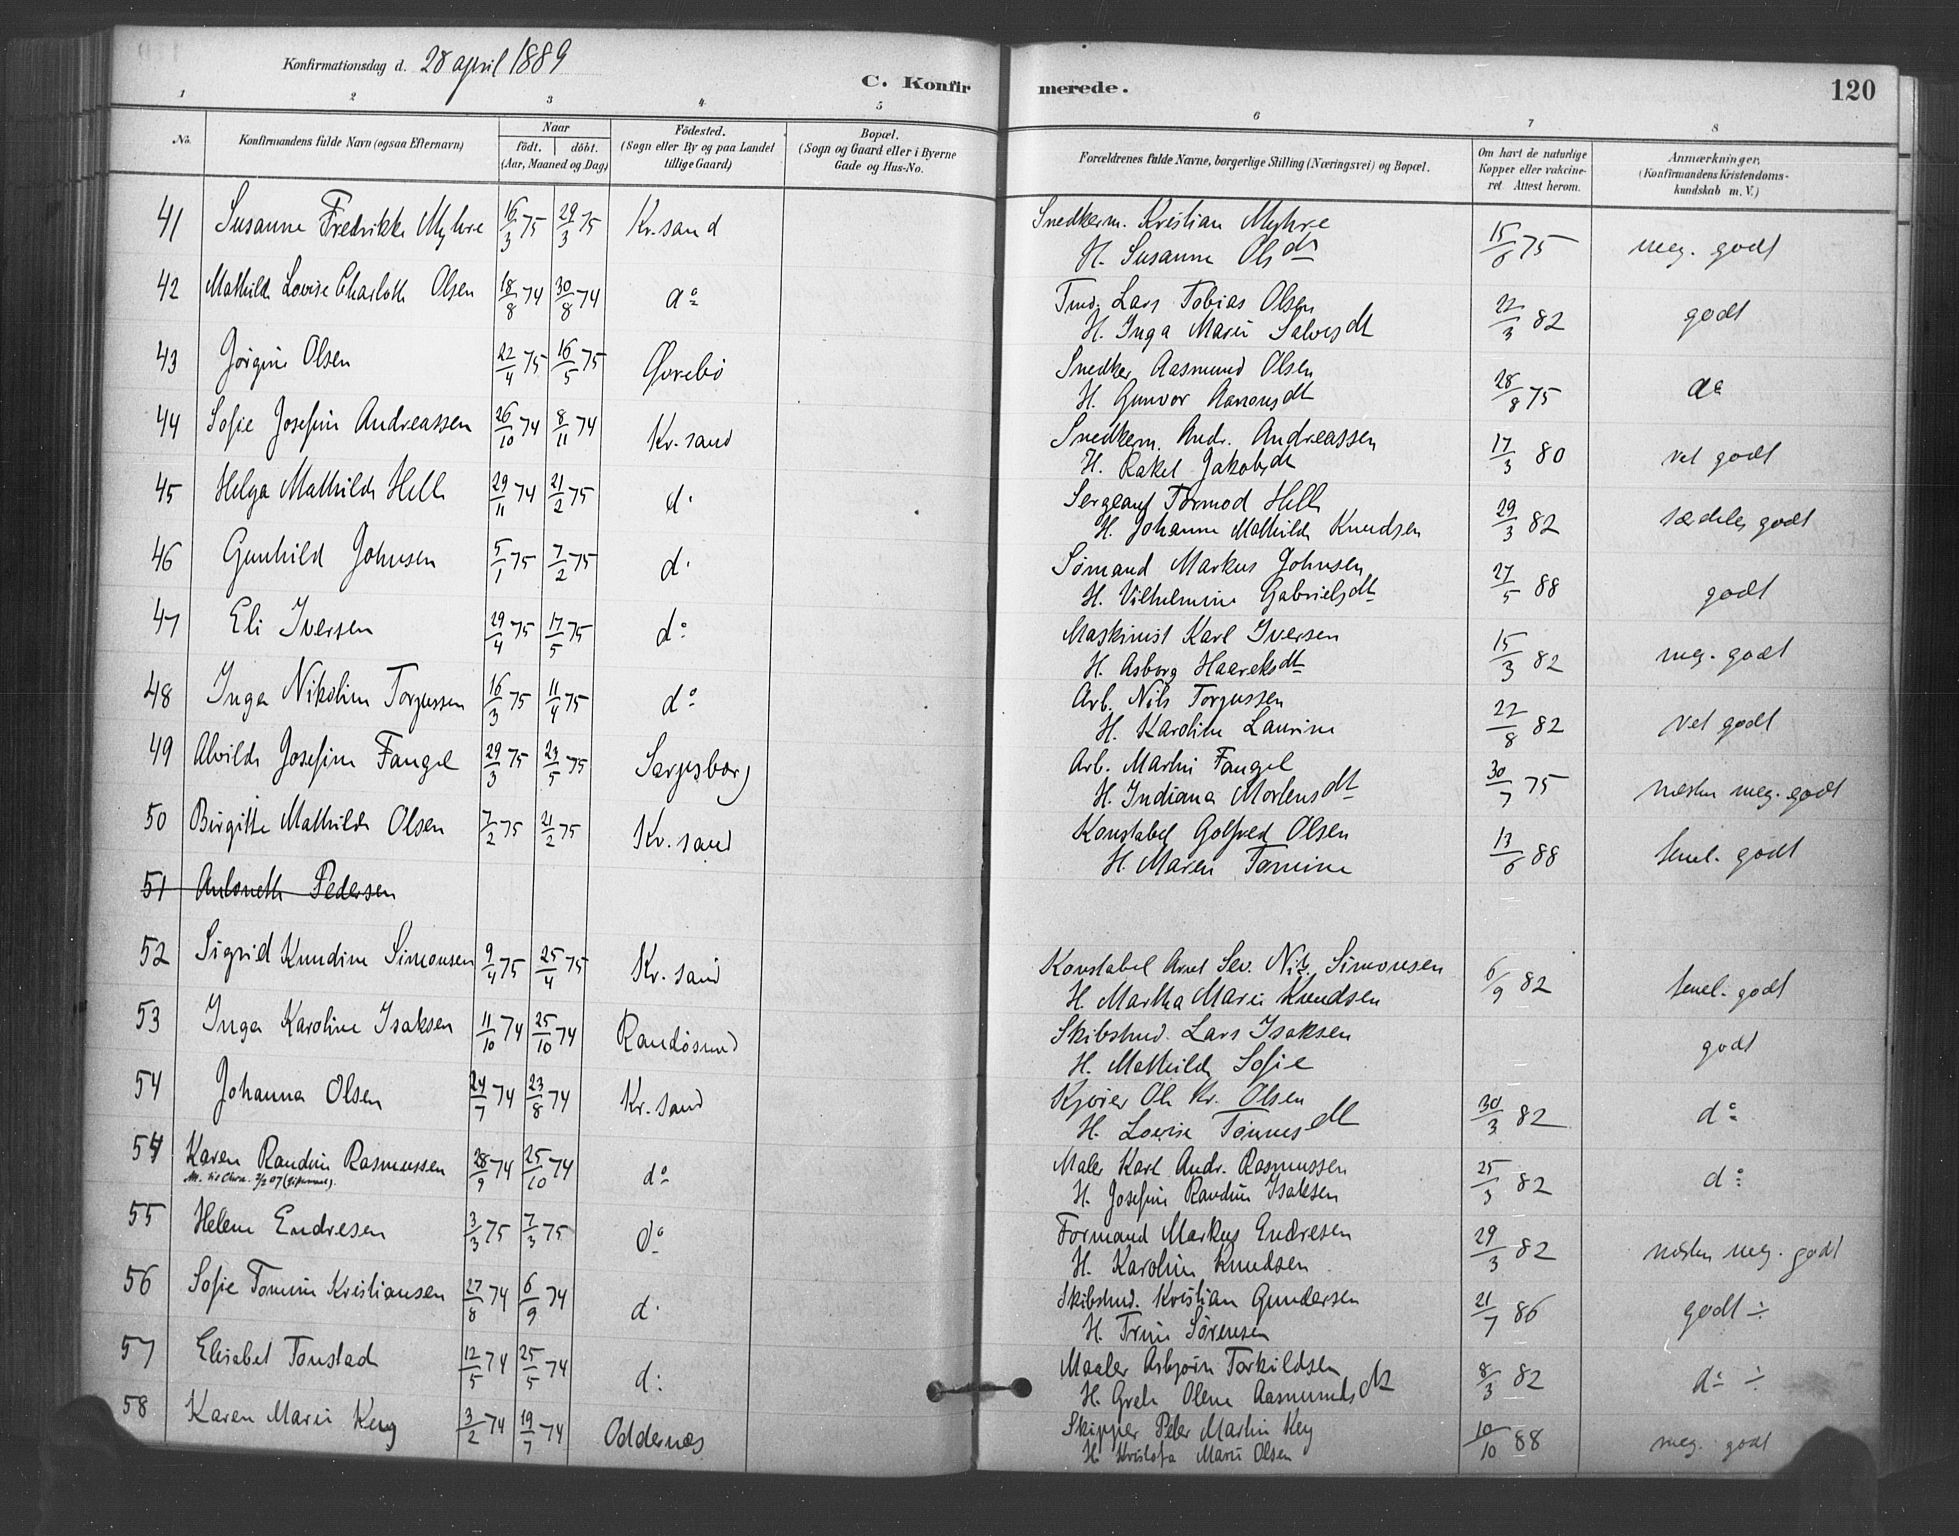 Konfirmationsdag d. 28 april 1889
C. Konfirmerede.
120
1 2 3 4 5 6 7 8
No. Konfirmandens fulde Navn (ogsaa Efternavn) Naar födt. döbt. (Aar, Maaned og Dag) Födested. (Sogn eller By og paa Landet tillige Gaard) Bopæl. (Sogn og Gaard eller i Byerne Gade og Hus-No. Forældrenes fulde Navne, borgerlige Stilling (Næringsvei) og Bopæl. Om havt de naturlige Kopper eller vakcineret Attest herom. Anmærkninger. (Konfirmandens Kristendomskundskab m. V.)
41 Susanne Fredrikke Myhre 16/3 75 29/3 75 Kr.sand Snedkerm. Kristian Myhre 15/8 75 meg. godt
H. Susanne Olsdt
42 Mathilde Lovise Charloth Olsen 18/8 74 30/8 74 do Tmd. Lars Tobias Olsen 22/3 82 godt
H. Inga Marie Salvesdt
43 Jørgine Olsen 22/4 75 16/5 75 Øvrebø Snedker Aasmund Olsen 28/8 75 do
H. Gunvor Aanonsdt
44 Sofie Josefine Andreassen 26/10 74 8/11 74 Kr.sand Snedkerm. Andr. Andreassen 17/3 80 vel godt
H. Rakel Jakobsdt
45 Helga Mathilde Helle 29/11 74 21/2 75 d. Sergeant Tormod Helle 29/3 82 særdeles godt
H. Johanne Mathilde Knudsen
46 Gunhild Johnsen 5/1 75 7/2 75 d. Sømand Markus Johnsen 27/5 88 godt
H. Vilhelmine Gabrielsdt
47 Eli Iversen 29/4 75 17/5 75 do Maskinist Karl Iversen 15/3 82 meg. godt
H. Asborg Haareksdt
48 Inga Nikoline Torgussen 16/3 75 11/4 75 do Arb. Nils Torgussen 22/8 82 vel godt
H. Karoline Laurine
49 Alvilde Josefine Fangel 29/3 75 23/5 75 Sarpsborg Arb. Martin Fangel 30/7 75 næsten meg. godt
H. Indiana Mortensdt
50 Birgitte Mathilde Olsen 7/2 75 21/2 75 Kr.sand Konstabel Golfred Olsen 13/6 88 temel. godt
H. Maren Tomine
51 Antoneth Pedersen
52 Sigrid Knudine Simonsen 9/4 75 25/4 75 Kr.sand Konstabel Arnt Sev. Nik. Simonsen 6/9 82 temel. godt
H. Martha Marie Knudsen
53 Inga Karoline Isaksen 11/10 74 25/10 74 Randøsund Skibstmd. Lars Isaksen godt
H. Mathilde Sofie
54 Johanna Olsen 24/7 74 23/8 74 Kr.sand Kjører Ole Kr. Olsen 30/3 82 do
H. Lovise Tønnesdt
54 Karen Randine Rasmussen 28/9 74 25/10 74 do Maler Karl Andr. Rasmussen 25/3 82 do
H. Josefine Randine Isaksen
55 Helene Endresen 3/3 75 7/3 75 do Formand Markus Endresen 29/3 82 næsten meg. godt
H. Karoline Knudsen
56 Sofie Tomine Kristiansen 27/8 74 6/9 74 d. Skibstmd. Kristian Gundersen 21/7 86 godt ÷
H. Trine Sørensen
57 Elisabet Tonstad 12/5 74 25/5 74 d: Maaler Asbjørn Torkildsen 8/3 82 do ÷
H. Grete Olene Aasmundsdt
58 Karen Marie Key 3/2 74 19/7 74 Oddernæs Skipper Peter Martin Key 10/10 88 meg. godt
H. Kristofa Marie Olsen